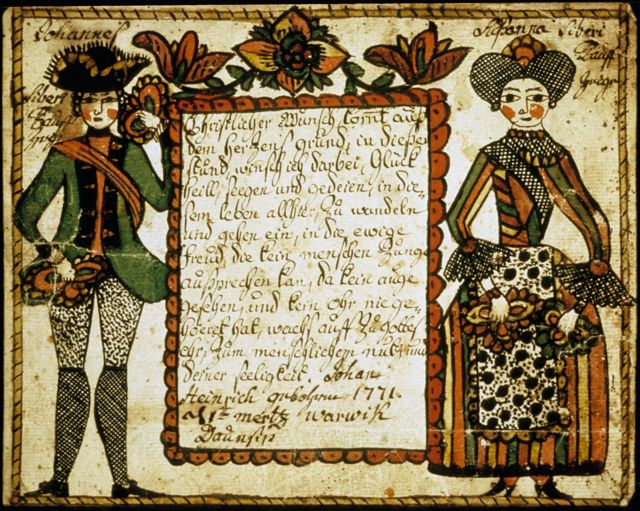 Johannes
Susanna Siberi
Sibert
Christlicher Wunsch komt auß
dem herzens grund, in dießer
stund, winsch ich darbei, Glück
heill, seegen und gedeien, in die-
sem leben allhie, zu wandeln
und gehen ein, in die ewige
freud, die kein menschen Zunge
aussprechen kan, da kein auge
gesehen, und kein ohr nie ge-
hoeret hat, wachs auff zu gottes
ehr, Zum menschlichem nutz und
deiner seeligkeit. Johan
Heinrich gebohren 1771
mertz warwik
Daunsip